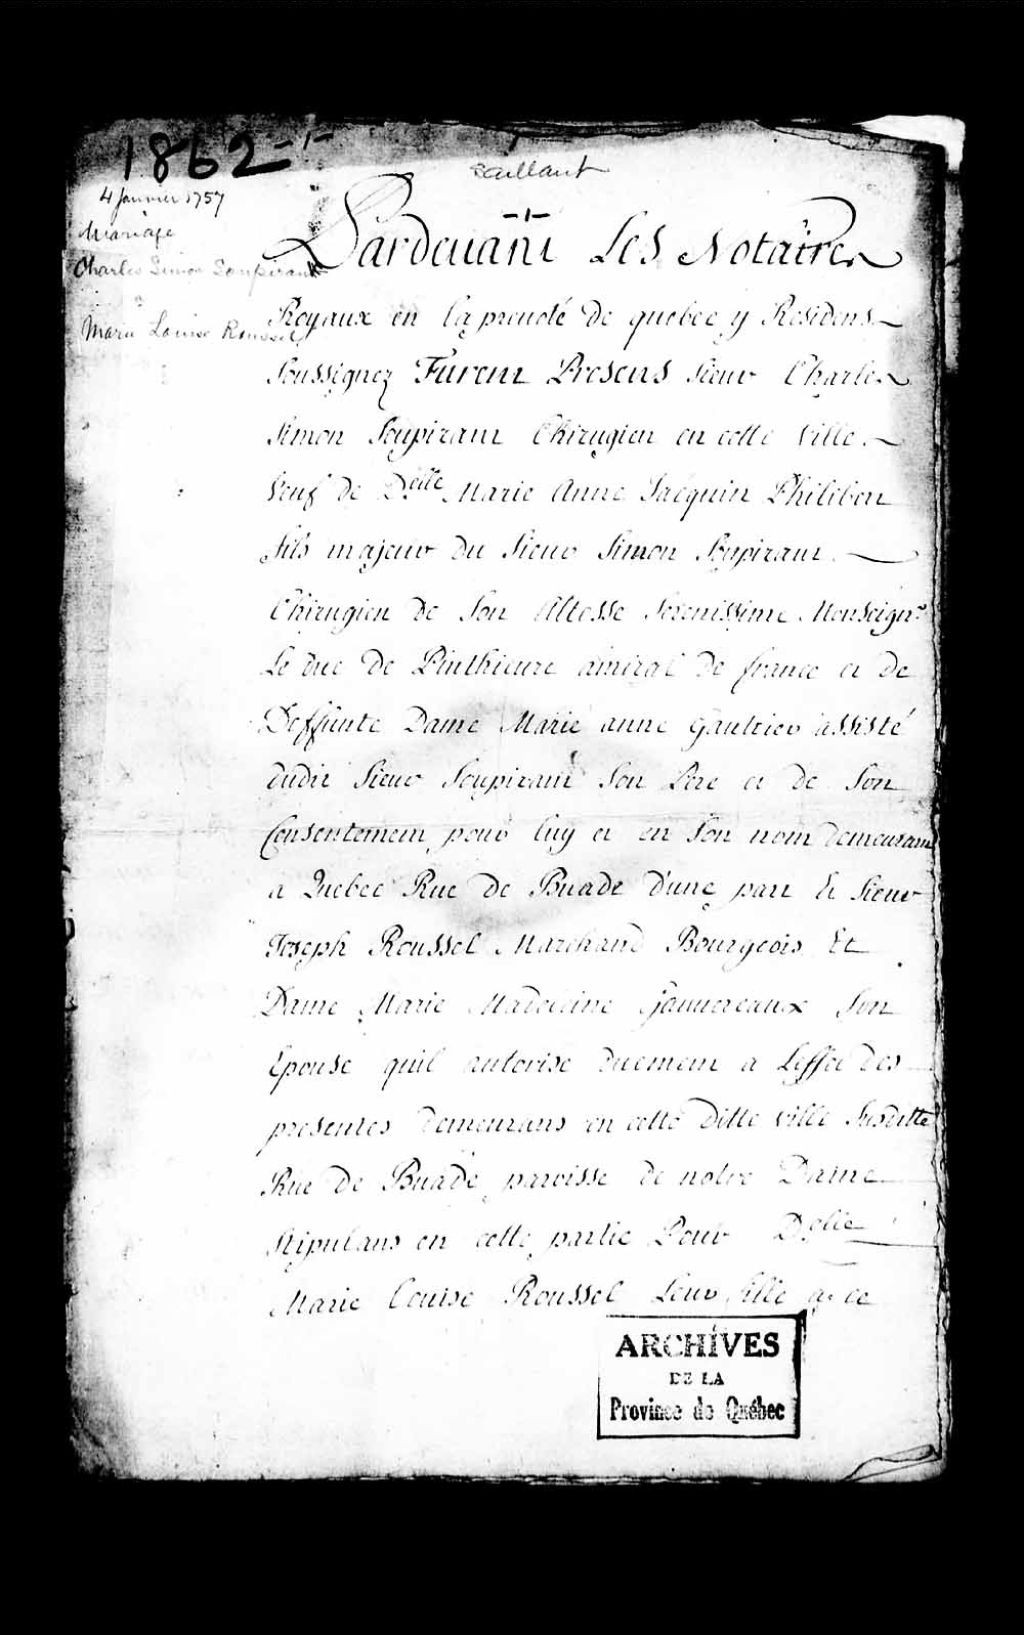 1862 - 1 -
Saillant
4 Janvier 1757
- 1 -
Mariage
Charles Simon Soupirant
&
Marie Louise Roussel
Pardeuant Les Notaires
Royaux en la preuoté de quebec y Residens
soussignez Furent Presens sieur Charles
simon soupirant Chirugien en cette ville
veuf de Delle Marie Anne Jacquin Philibert
fils majeur du sieur simon soupirant
Chirugien de son Altesse serenissime Monseignr
Le duc de Pinthieure amiral de france et de
Deffunte Dame Marie anne gaultier assisté
dudit sieur soupirant son Pere et de son
Consentement pour luy et en son nom demeurant
a Quebec Rue de Buade d'une part Et sieur
Joseph Roussel Marchand Bourgeois Et
Dame Marie Madeleine son
Epouse quil autorise duement a Leffet des
presentes demeurans en cette ditte ville susditte
Rue de Buade paroisse de notre Dame
stipulans en cette partie Pour Delle
Marie Louise Roussel Leur fille a ce
ARCHIVES
DE LA
Province de Québec